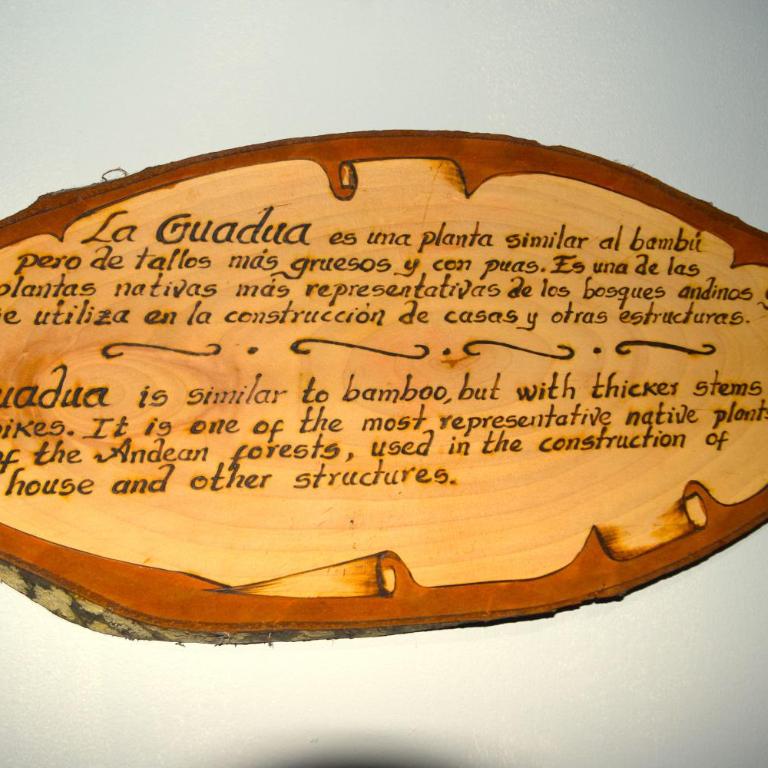 La Guadua es una planta similar al bambú
pero de tallos más gruesos y con puas. Es una de las
plantas nativas más representativas de los bosques andinos y
se utiliza en la construcción de casas y otras estructuras.
Guadua is similar to bamboo, but with thicker stems
spikes. It is one of the most representative native plants
of the Andean forests, used in the construction of
house and other structures.